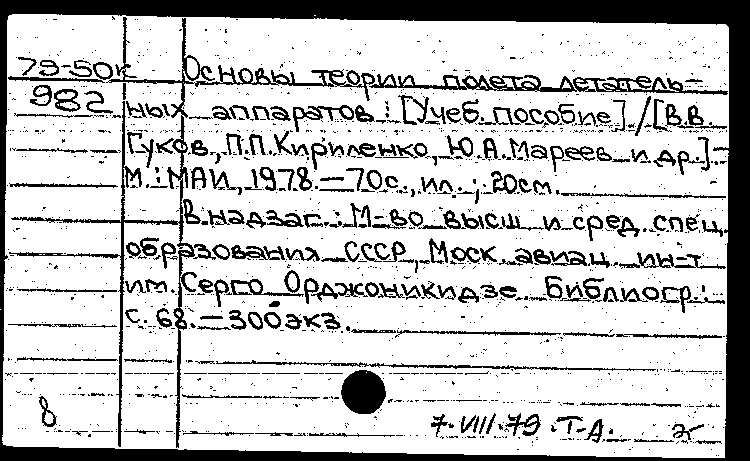 79-50к Основы теории полета летатель-
982 ных аппаратов : [Учеб. пособие] / [В.В.
Гуков, П.П. Кириленко, Ю.А. Мареев и др.] -
М. : МАИ, 1978. — 70 с., ил. ; 20 см.
В надзаг. : М-во высш и сред. спец.
образования СССР, Моск. авиац. ин-т
им. Серго Орджоникидзе. Библиогр. :
с. 68. — 300 экз.
8
7.VIII.79 .Т-А.